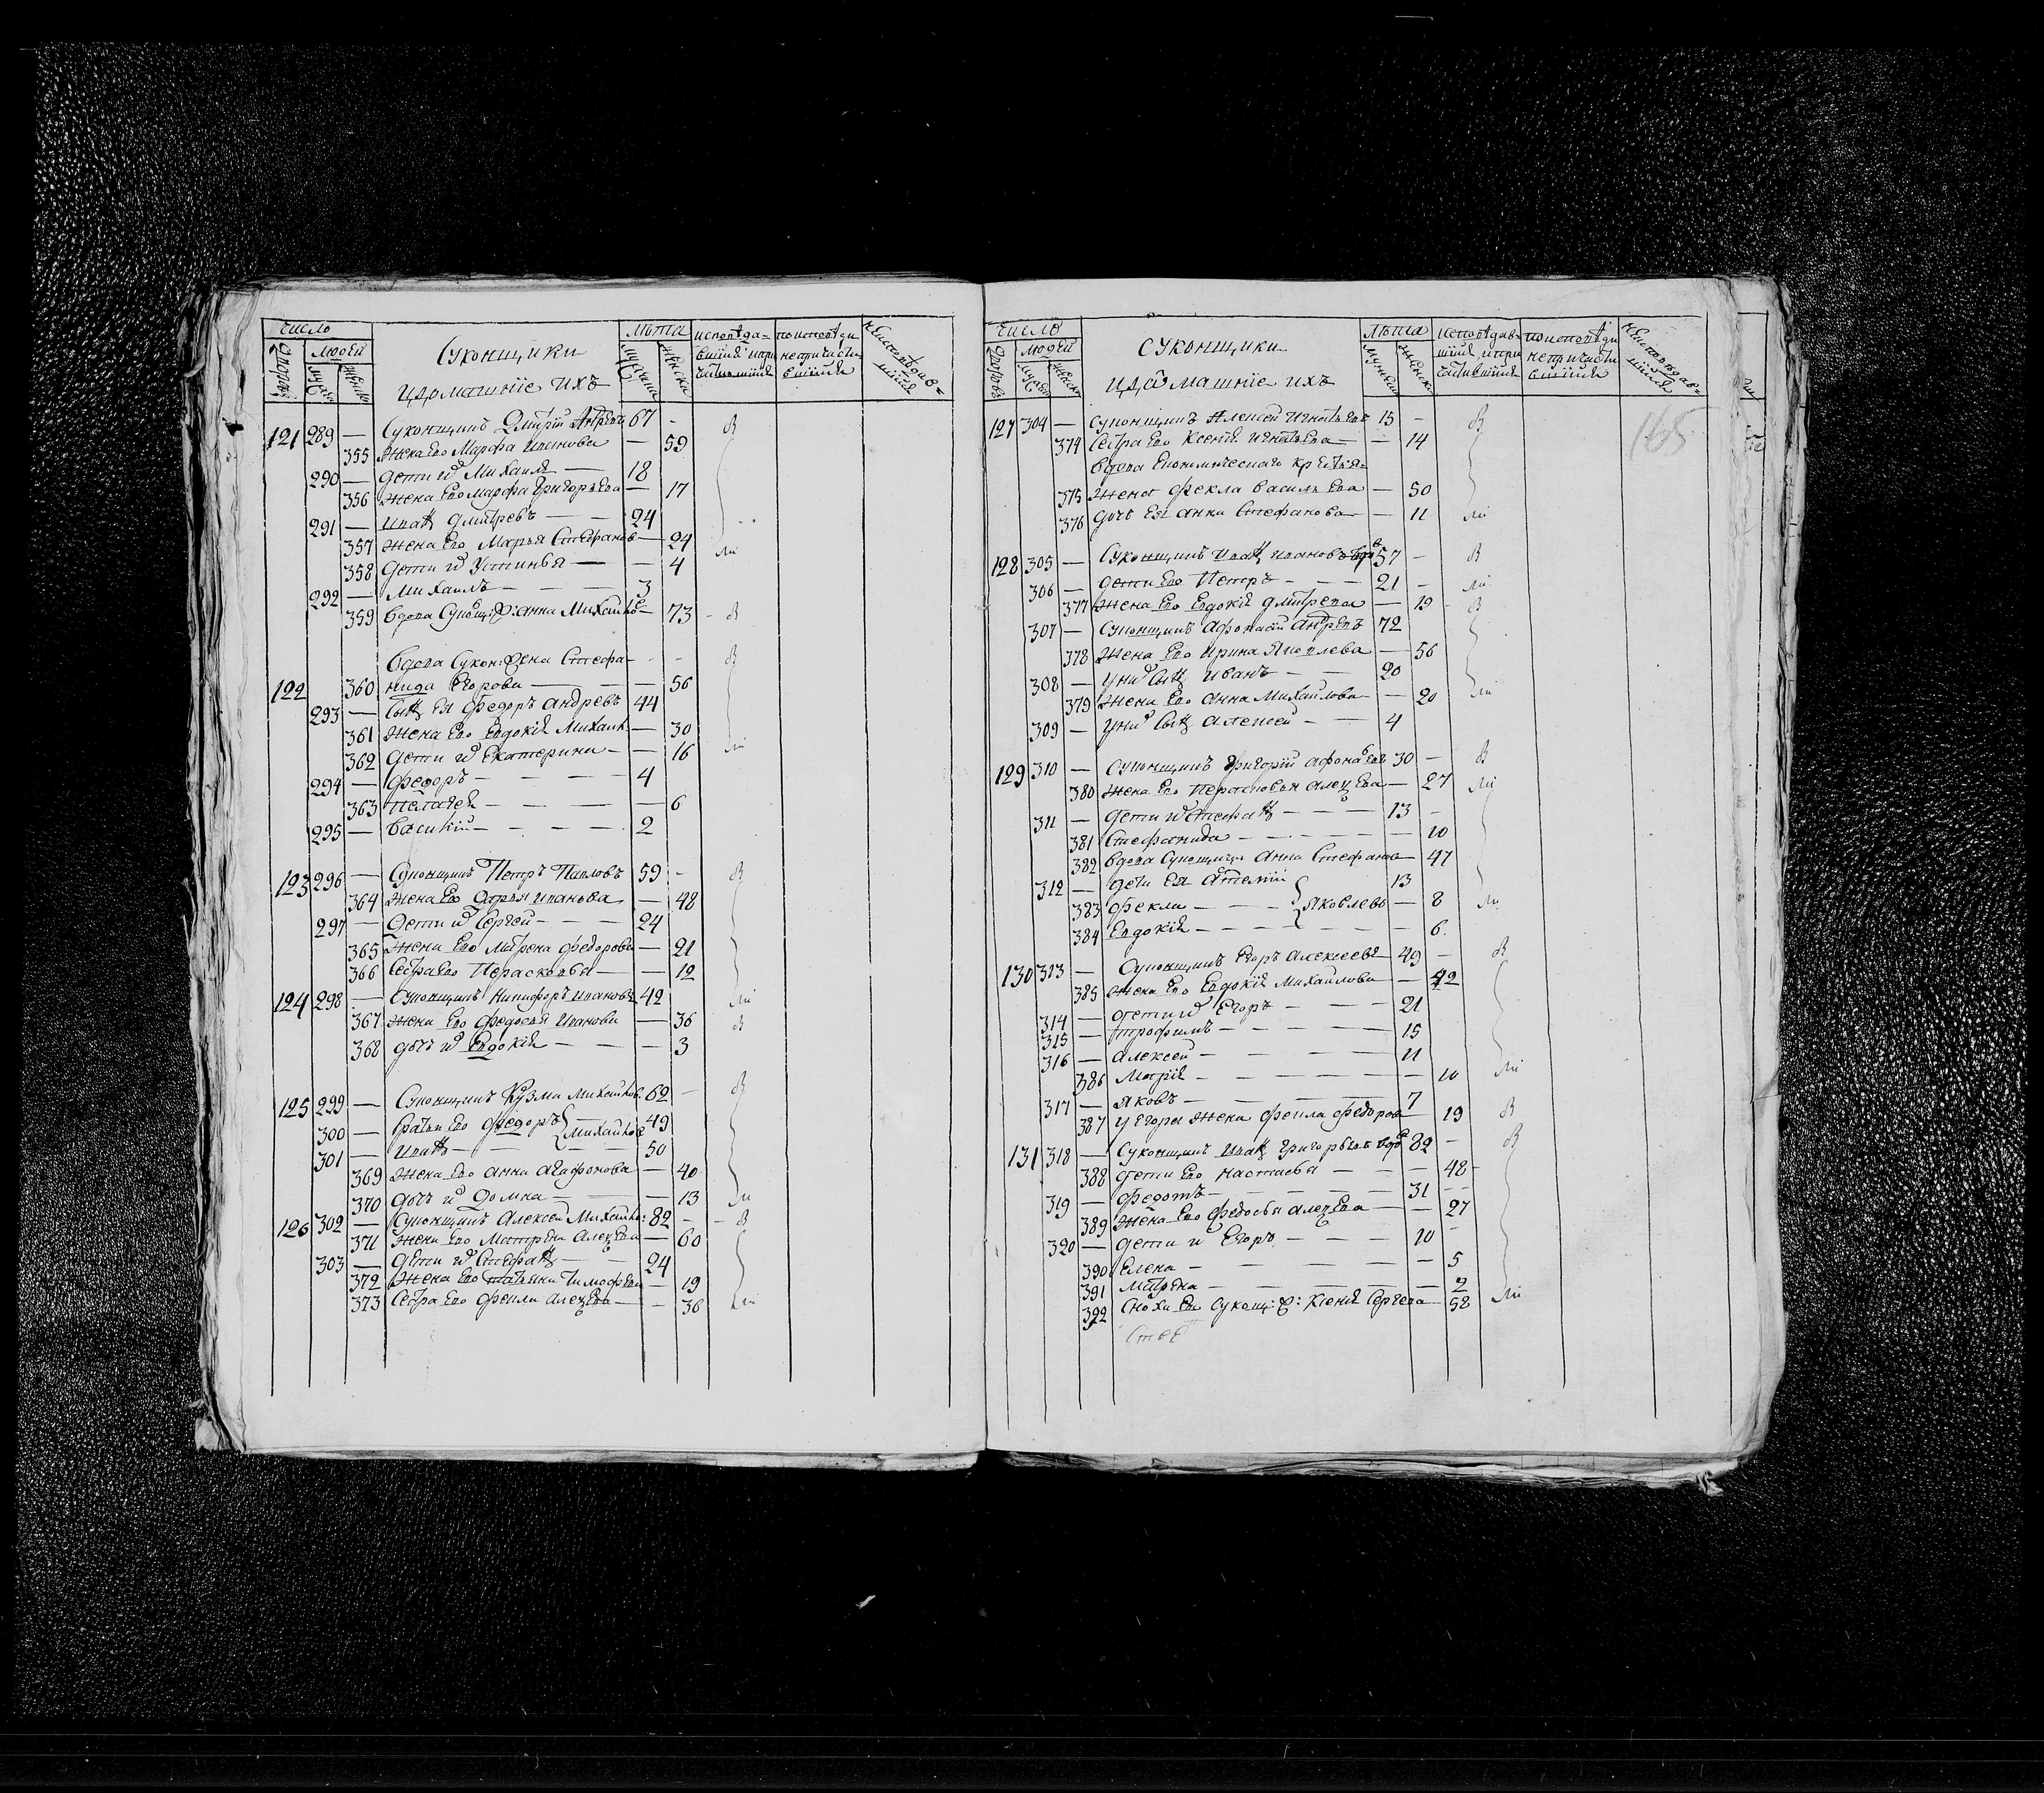 число
людей
Суконщики
и домашніе ихъ
лѣта
мужеска
женска
исповѣдавшіяся и причастившіися
по исповѣди не причастившіися
не исповѣдавшіися
121 289 — Суконщикъ Дмитрій Андреевъ 67 -
355 Жена Ево Марфа Иванова — 59
290 — Дети их Михаила — 18
356 Жена Ево Марфа Григорьева — 17
291 — Иванъ Дмитревъ — 24
357 Жена Ево Марья Стефанов — 24
358 Дети их Устинья — — 4
292 — Михаилъ — — 3
359 Вдова Сукощ: Анна Михайло — 73
Вдова Сукон: жена Стефа-
122 360 нида Егорова — — 56
293 — Сынъ Ея Федоръ Андревъ 44
361 Жена Ево Евдокія Михаил — 30
362 Дети их Екатерина — — 16
294 — Федоръ — — — 4
363 Пелагея — — — 6
295 — Василій — — — 2
123 296 — Суконщикъ Петръ Павловъ 59 -
364 Жена Ево Дарья Иванова — 48
297 — Дети их Сергей — — 24
365 Жена Ево Матрена Федорова — 21
366 Сестра Ево Парасковья — — 12
124 298 — Суконщикъ Никифоръ Ивановъ 42
367 Жена Ево Федосья Иванова — 36
368 дочь их Евдокія — — — 3
125 299 — Суконщикъ Кузма Михайлов 62 -
300 — Братья Ево Федоръ Михайлов 49
301 — Иванъ — — — 50
369 Жена Ево Анна Агафонова — 40
370 дочь их Домна — — — 13
126 302 — Суконщикъ Алексей Михайло: 82 -
371 Жена Ево Матрена Алеѯева — 60
303 — Дети их Стефанъ — 24
372 Жена Ево Татьяна Тимофеева — 19
373 Сестра Ево Фекла Алеѯева — - 36
число
людей
Суконщики
и домашніе ихъ
лѣта
мужеска
женска
исповѣдавшіися и причастившіися
по исповѣди не причастившіися
не исповѣдавшіися
165
127 304 — Суконщикъ Алексей Игнатьевъ 15 -
374 Сестра Ево Ксенія Игнатьева — - 14
вдова Економическаго крестья-
375 Жена Фекла Васильева — 50
376 дочь Ея Анна Стефанова — - 11
128 305 — Суконщикъ Иванъ Ивановъ 57 -
306 — дети Ево Петръ — — 21 -
377 Жена Ево Евдокія Дмитрева — 19
307 — Суконщикъ Афонасій Андревъ 72
378 Жена Ево Ирина Яковлева — 56
308 — У них Сынъ Иванъ — — 20
379 Жена Ево Анна Михайлова — - 20
309 — У них Сынъ Алексей — — 4
129 310 — Суконщикъ Григорій Афонасьев 30 -
380 Жена Ево Парасковья Алеѯева — 27
311 — Дети их Стефанъ — — 13 -
381 Стефанида — — — — 10
382 Вдова Суконщич: Анна Стефанов — 47
312 — дети Ея 13
383 Фекла — — — Яковлевы — 8
384 Евдокія — — — — 6
130 313 — Суконщикъ Егоръ Алексеевъ 49 -
385 Жена Ево Евдокія Михайлова — - 42
314 — дети их Егоръ — — 21
315 — Трофимъ — — — 15
316 — Алексей — — — 11
386 Марія — — — — - 10
317 — Яковъ — — — 7
387 У Егора Жена Фекла Федоров — 19
131 318 — Суконщикъ Иванъ Григорьевъ вдов 82 -
388 дети Ево Настасья — — — 48
319 — Федотъ — — — 31 -
389 Жена Ево Федосья Алеѯева — - 27
320 — Дети их Егоръ — — 10 -
390 Елена — — — — 5
391 Матрена — — — — 2
392 Сноха Ея Сукощ: Ж: Ксенія Сергеева — 58